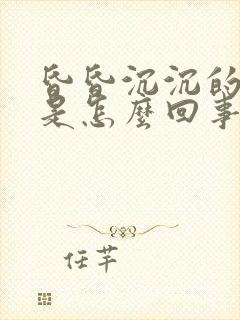 昏昏沉沉的
是怎麼回事
任芊